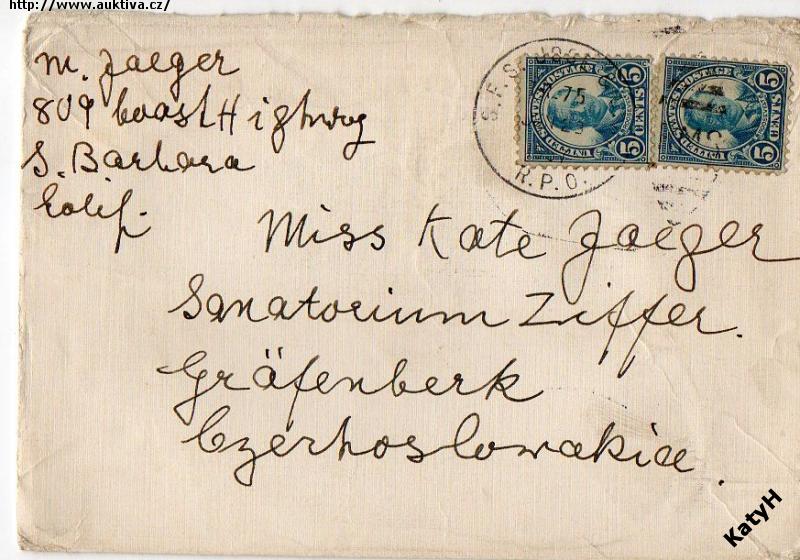 http://www.auktiva.cz/
M. Jaeger
809 Coast Hightway
S. Barbara
Calif.
S.F. S. JOSE
75
R.P.O.
UNITED STATES POSTAGE
5 CENTS 5
UNITED STATES POSTAGE
5 CENTS 5
Miss Kate Jaeger
Sanatorium Ziffer.
Gräfenberk
Czerhoslowakia.
KatyH